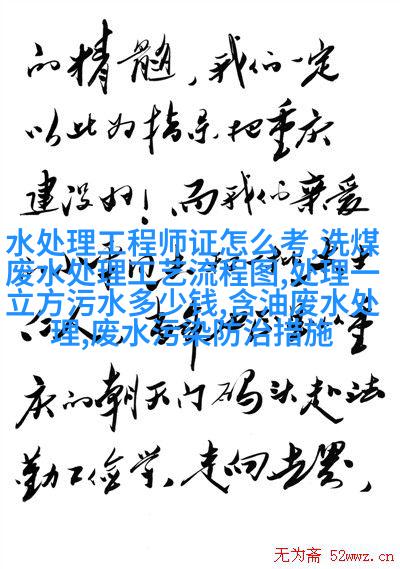 的精髓，我们一定
以此为指导把重庆
建设好！而我们亲爱
水处理工程师证怎么考,洗煤
废水处理工艺流程图,处理一
立方污水多少钱,含油废水处
理,废水污染防治措施
庆的朝天门码头赴法
勤工俭学，走向世界，
无为斋 52wwz.cn